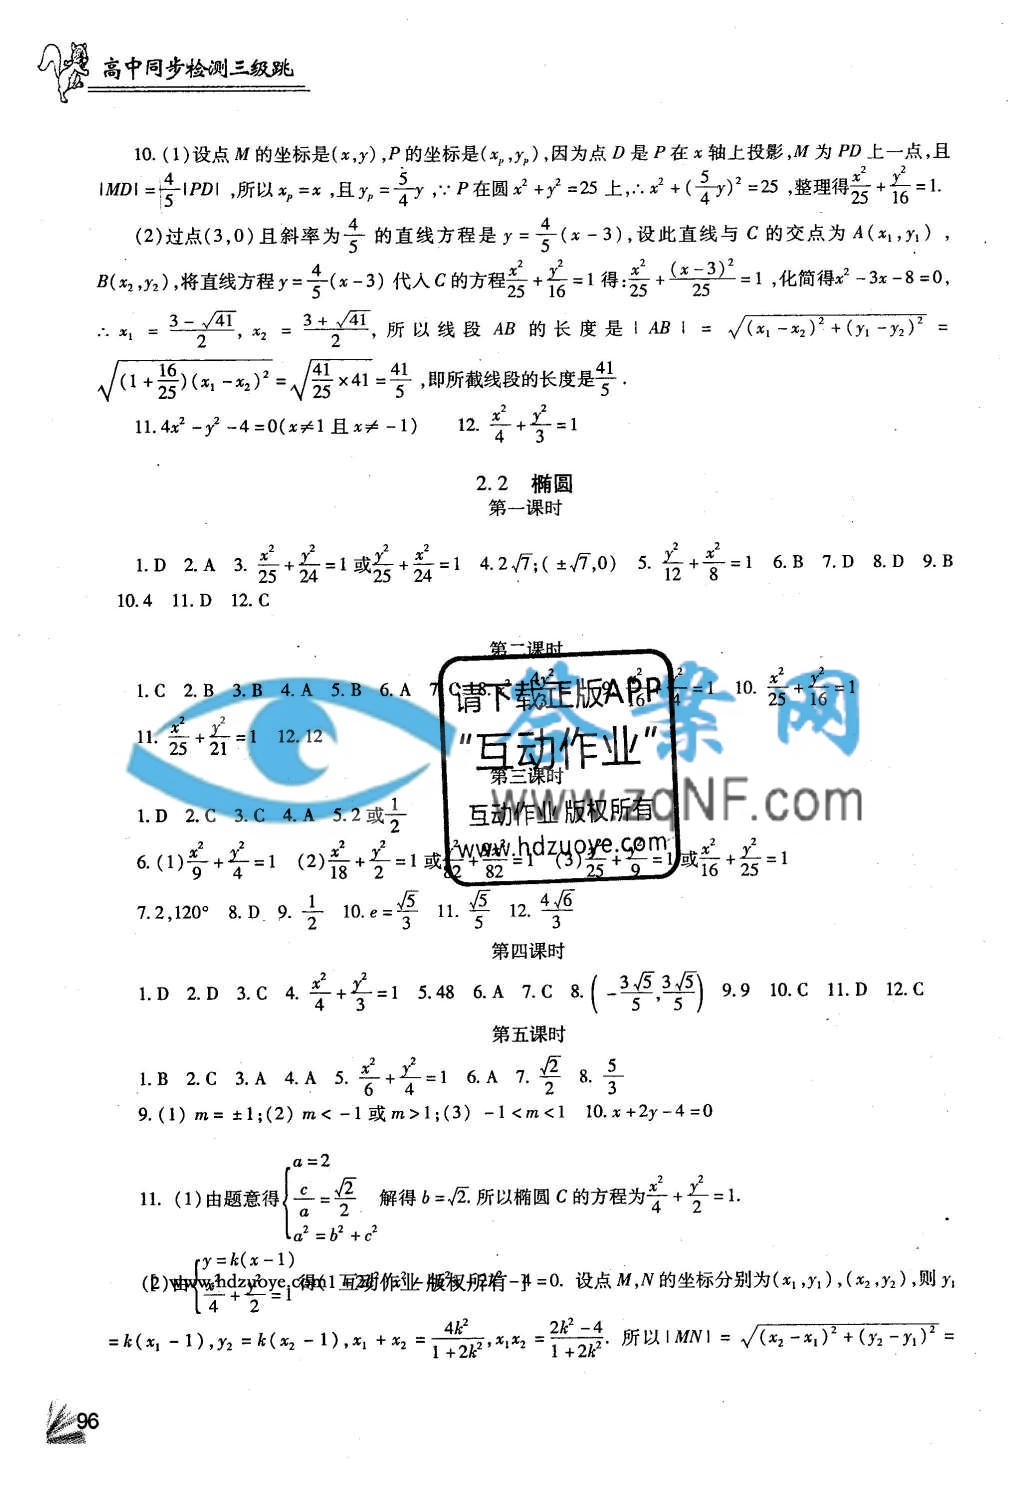 高中同步检测三级跳
10. (1)设点 M 的坐标是(x,y),P的坐标是(xₚ,yₚ),因为点 D 是 P 在 x 轴上投影,M 为 PD 上一点,且
|MD|=4/5|PD|,所以 xₚ=x,且 yₚ=5/4y,∵P 在圆 x²+y²=25 上,∴x²+(5/4y)²=25,整理得x²/25+y²/16=1.
(2)过点(3,0)且斜率为4/5 的直线方程是 y=4/5(x-3),设此直线与 C 的交点为 A(x₁,y₁),
B(x₂,y₂),将直线方程 y=4/5(x-3) 代入 C 的方程x²/25+y²/16=1 得:x²/25+(x-3)²/25=1,化简得x²-3x-8=0,
∴x₁=(3-√41)/2, x₂=(3+√41)/2,所以线段 AB 的长度是|AB|=√((x₁-x₂)²+(y₁-y₂)²)=
√((1+16/25)(x₁-x₂)²)=√(41/25×41)=41/5,即所截线段的长度是41/5.
11. 4x²-y²-4=0(x≠1 且 x≠-1) 12. x²/4+y²/3=1
2.2 椭圆
第一课时
1. D 2. A 3. x²/25+y²/24=1 或y²/25+x²/24=1 4. 2√7;(±√7,0) 5. y²/12+x²/8=1 6. B 7. D 8. D 9. B
10. 4 11. D 12. C
第二课时
1. C 2. B 3. B 4. A 5. B 6. A 7. C 8. 9. 10. x²/25+y²/16=1
请下载正版APP
11. x²/25+y²/21=1 12. 12
"互动作业"
答案网
www.zqNF.com
第三课时
1. D 2. C 3. C 4. A 5. 2 或1/2
互动作业 版权所有
www.hdzuoye.com
6. (1)x²/9+y²/4=1 (2)x²/18+y²/2=1 或y²/82+9x²/82=1 (3)x²/25+y²/9=1 或x²/16+y²/25=1
7. 2,120° 8. D 9. 1/2 10. e=√5/3 11. √5/5 12. 4√6/3
第四课时
1. D 2. D 3. C 4. x²/4+y²/3=1 5. 48 6. A 7. C 8. (-3√5/5,3√5/5) 9. 9 10. C 11. D 12. C
第五课时
1. B 2. C 3. A 4. A 5. x²/6+y²/4=1 6. A 7. √2/2 8. 5/3
9. (1) m=±1;(2) m<-1 或 m>1;(3) -1<m<1 10. x+2y-4=0
11. (1)由题意得{a=2 c/a=√2/2 a²=b²+c² 解得 b=√2. 所以椭圆 C 的方程为x²/4+y²/2=1.
(2)由{y=k(x-1) x²/4+y²/2=1 得 =0. 设点 M,N 的坐标分别为(x₁,y₁),(x₂,y₂),则 y₁
[ www.hdzuoye.com 互动作业 版权所有 ]
=k(x₁-1),y₂=k(x₂-1),x₁+x₂=4k²/(1+2k²),x₁x₂=(2k²-4)/(1+2k²). 所以|MN|=√((x₂-x₁)²+(y₂-y₁)²)=
96